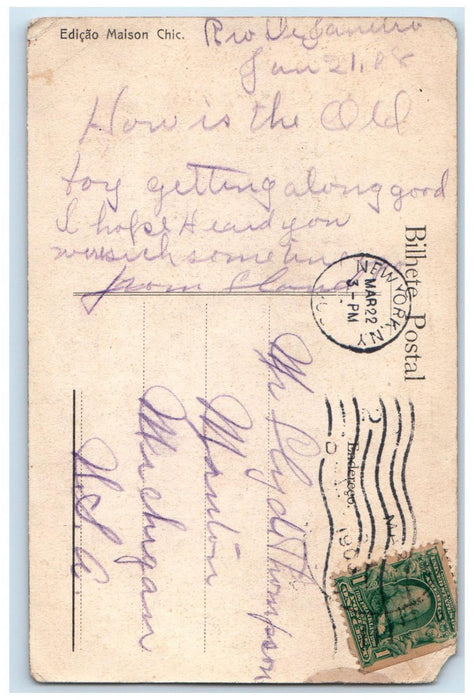 Edição Maison Chic.
Rio De Janeiro
Jan 21, 08
How is the Old
toy getting along good
I hope Heard you
were sick some time
from
Bilhete Postal
NEW YORK, N.Y.
MAR 22
3 - PM
Endereço.
Mr Clyd Thompson
Manton
Michigan
U.S.A.
1
1